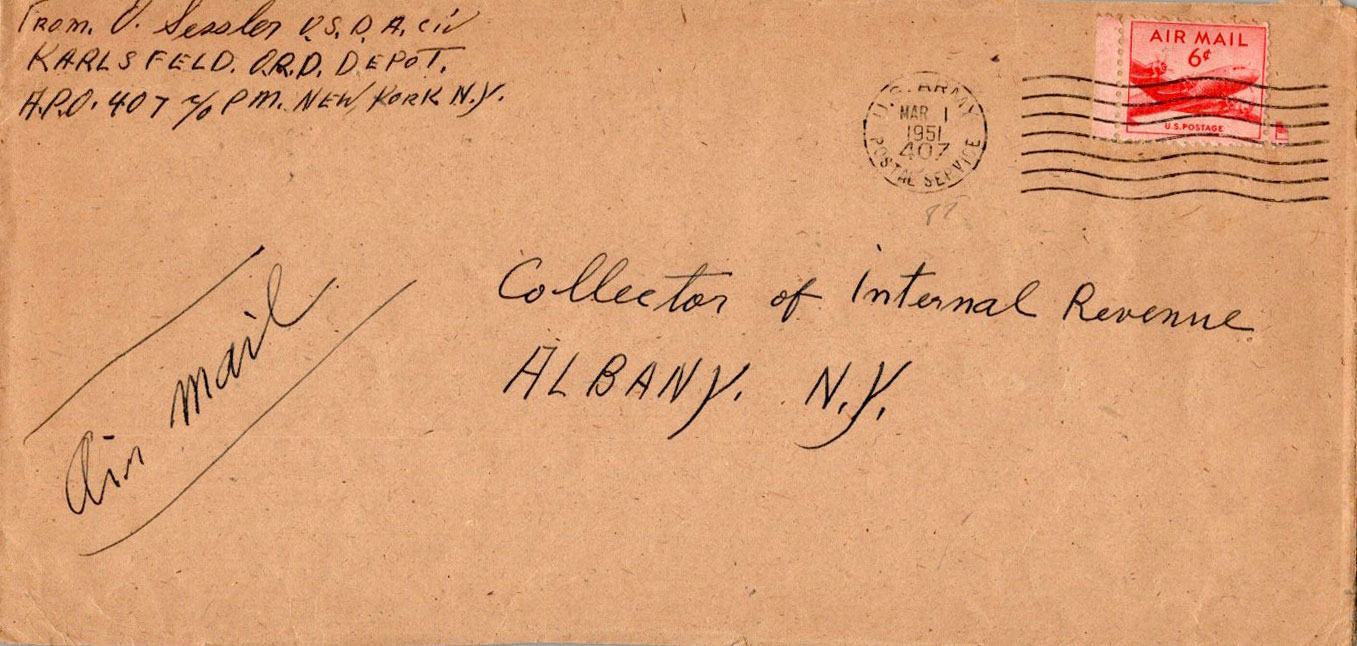 From. O. Sessler U.S.D.A. civ
KARLSFELD. ORD. DEPOT.
A.P.O. 407 c/o P M. NEW YORK N.Y.
AIR MAIL
6¢
U.S. POSTAGE
U.S. ARMY
MAR 1
1951
407
POSTAL SERVICE
Collector of Internal Revenue
ALBANY. N.Y.
Air Mail